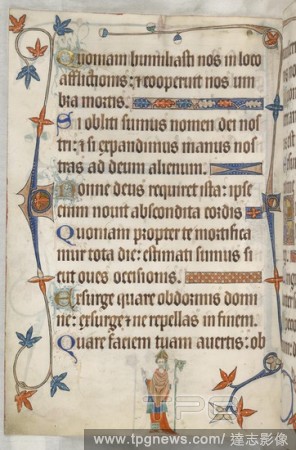 Quoniam humiliasti nos in loco
afflictionis: ⁊ cooperuit nos um
bra mortis.
Si obliti sumus nomen dei nos
tri: ⁊ si expandimus manus nos
tras ad deum alienum.
Nonne deus requiret ista: ipse
enim nouit abscondita cordis
Quoniam propter te mortifica
mur tota die: estimati sumus si
cut oues occisionis.
Exsurge quare obdormis domi
ne: exsurge ⁊ ne repellas in finem.
Quare faciem tuam auertis: ob
TPG
www.tpgnews.com／達志影像